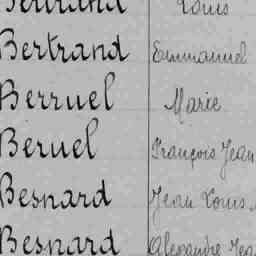 Bertrand Louis
Bertrand Emmanuel
Berruel Marie
Beruel François Jean
Besnard Jean Louis
Besnard Alexandre Jea